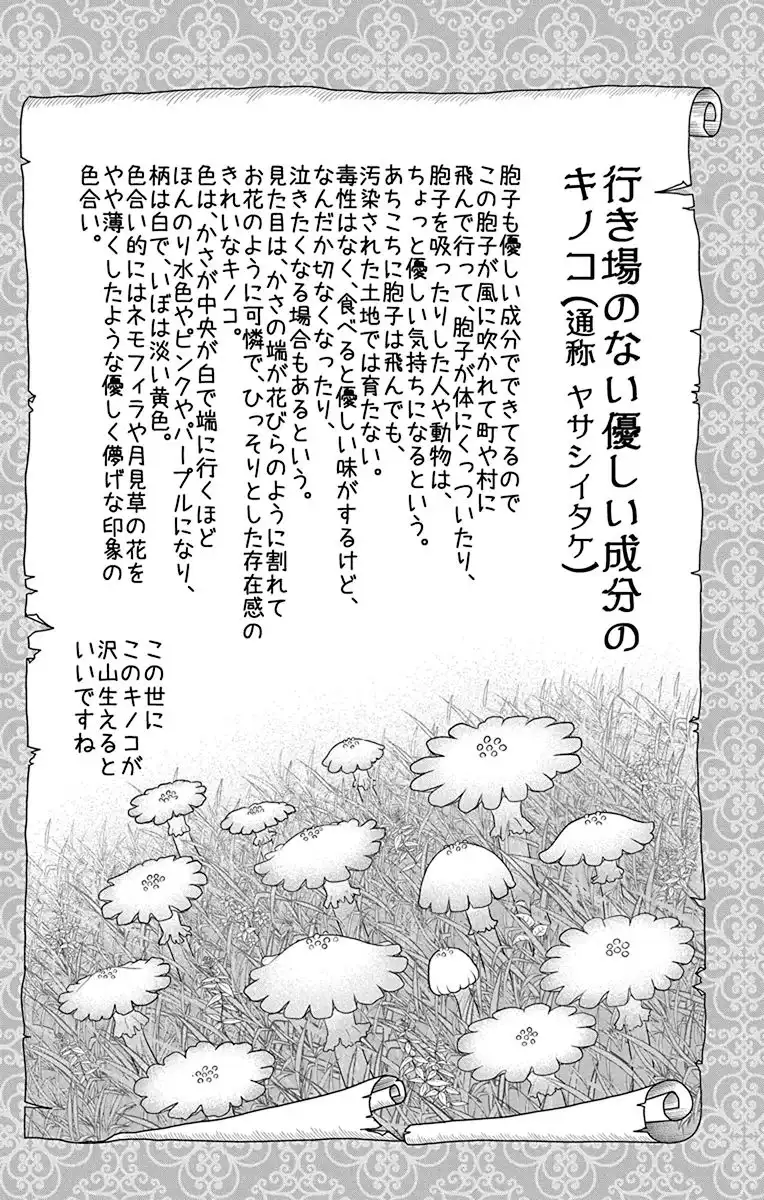 行き場のない優しい成分の
キノコ(通称 ヤサシイタケ)
胞子も優しい成分でできてるので
この胞子が風に吹かれて町や村に
飛んで行って、胞子が体にくっついたり、
胞子を吸ったりした人や動物は、
ちょっと優しい気持ちになるという。
あちこちに胞子は飛んでも、
汚染された土地では育たない。
毒性はなく、食べると優しい味がするけど、
なんだか切なくなったり、
泣きたくなる場合もあるという。
見た目は、かさの端が花びらのように割れて
お花のように可憐で、ひっそりとした存在感の
きれいなキノコ。
色は、かさが中央が白で端に行くほど
ほんのり水色やピンクやパープルになり、
柄は白で、いぼは淡い黄色。
色合い的にはネモフィラや月見草の花を
やや薄くしたような優しく儚げな印象の
色合い。
この世に
このキノコが
沢山生えると
いいですね